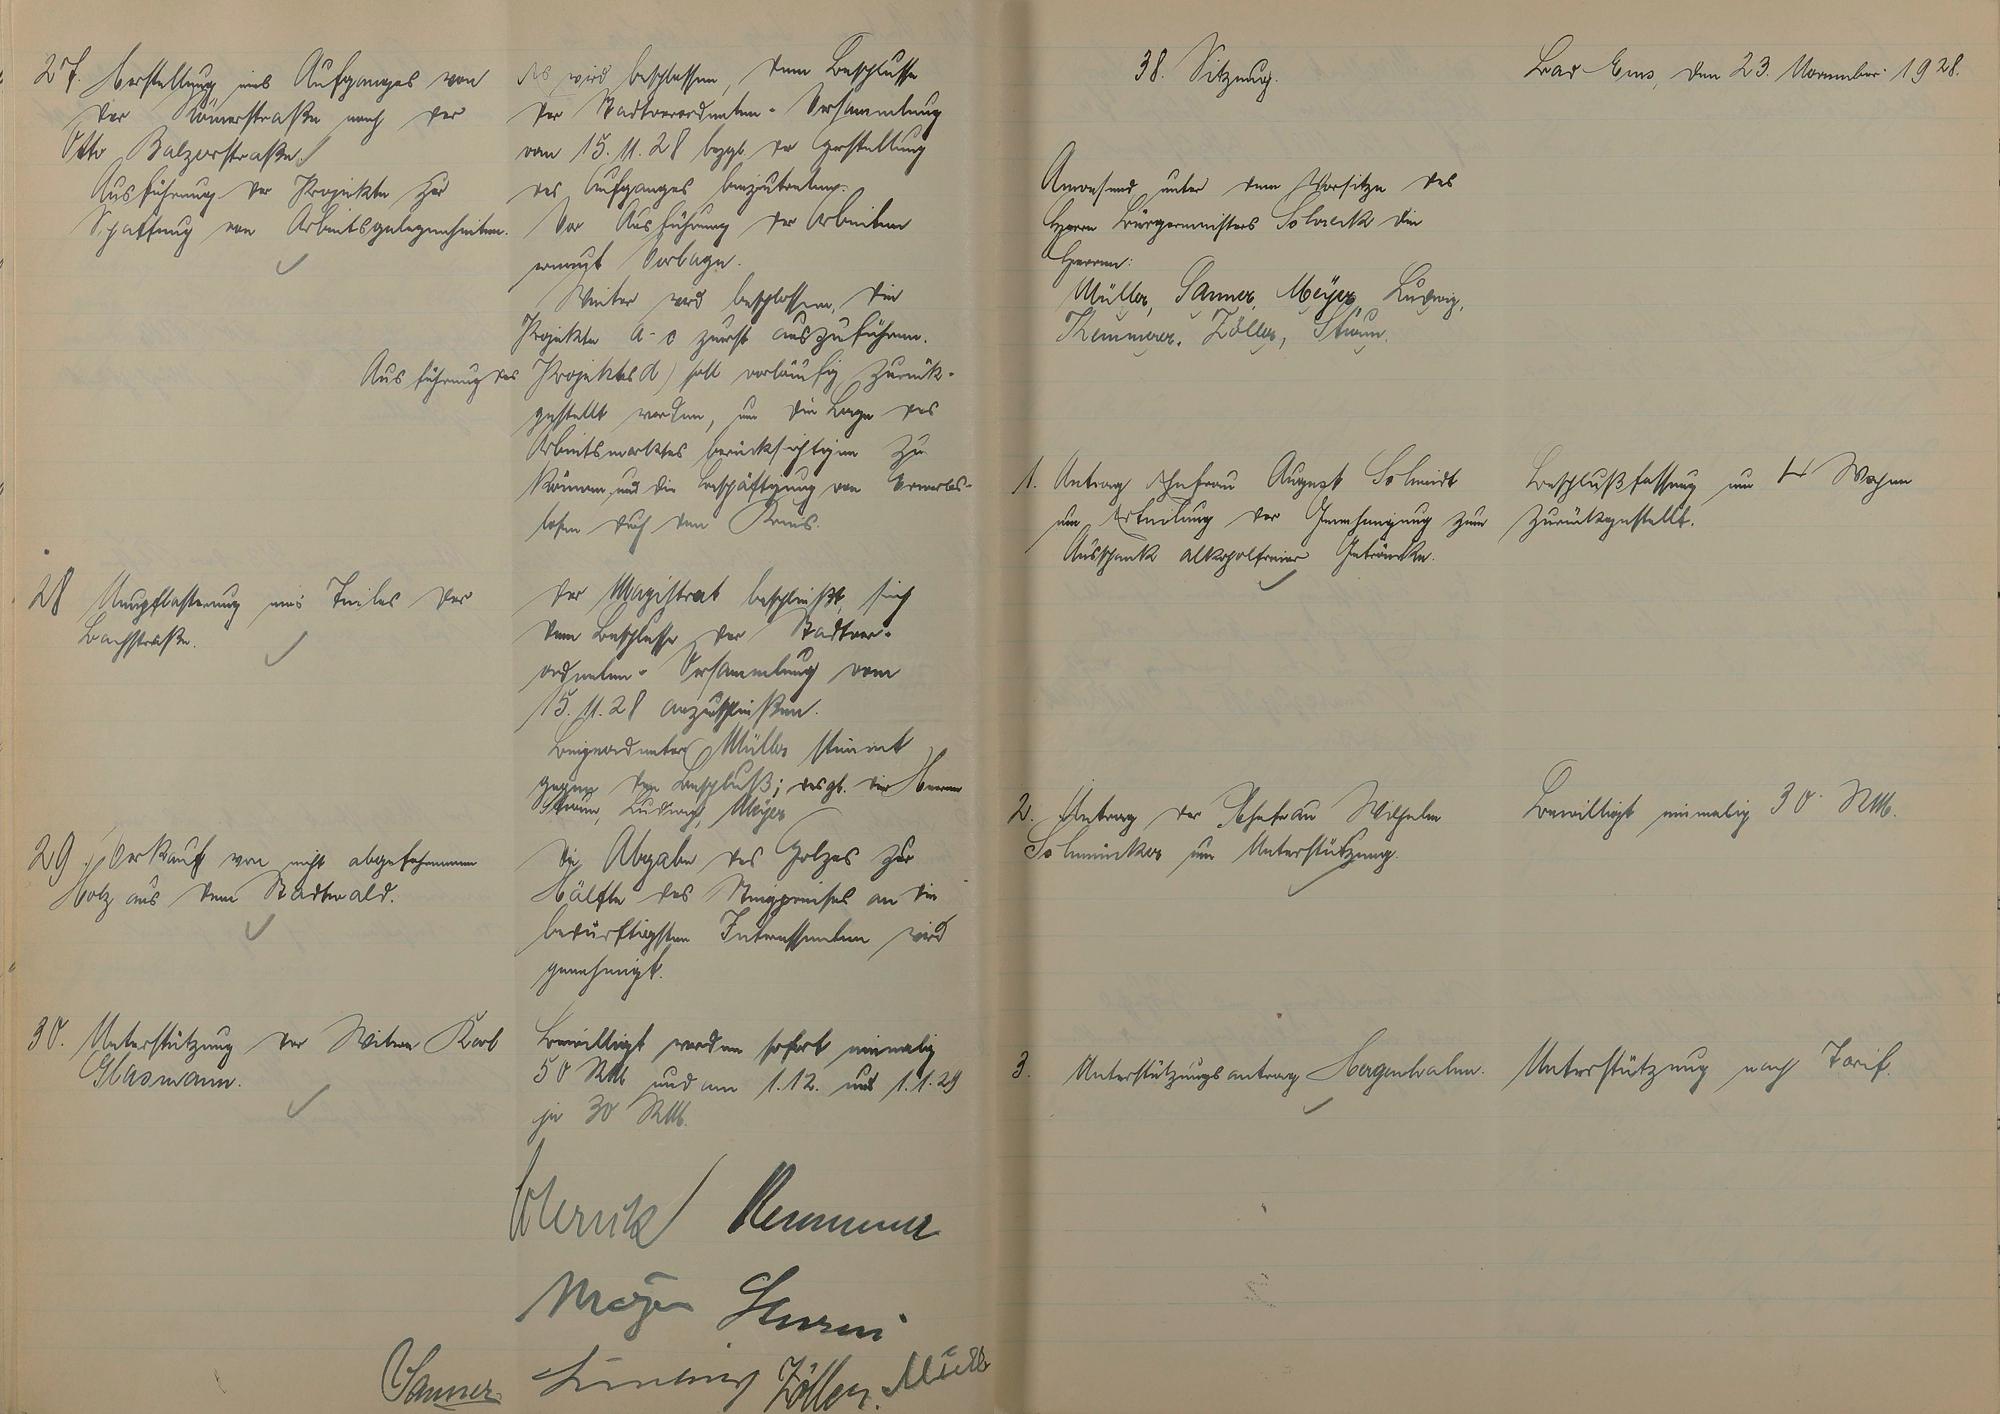 27. Herstellung eines Aufganges von
der Römerstraße nach der
Otto Balzerstraße.
Ausführung der Projekte zur
Schaffung von Arbeitsgelegenheiten.
Es wird beschlossen, dem Beschlusse
der Stadtverordneten-Versammlung
vom 15.11.28 bezgl. der Herstellung
des Aufganges beizutreten.
Vor Ausführung der Arbeiten
erneut Vorlage.
Weiter wird beschlossen, die
Projekte a-c zuerst auszuführen.
Ausführung des Projektes d) soll vorläufig zurück-
gestellt werden, um die Lage des
Arbeitsmarktes berücksichtigen zu
können und die Beschäftigung von Erwerbs-
losen durch den Kreis.
28 Neupflasterung eines Teiles der
Bachstraße.
Der Magistrat beschließt, sich
dem Beschlusse der Stadtver-
ordneten-Versammlung vom
15.11.28 anzuschließen.
Beigeordneter Müller stimmt
gegen den Beschluß; desgl. die Herren
Sturm, Ludwig, Meyer
29. Verkauf von nicht abgefahrenem
Holz aus dem Stadtwald.
Die Abgabe des Holzes zur
Hälfte des Steigpreises an die
bedürftigsten Interessenten wird
genehmigt.
30. Unterstützung der Witwe Karl
Glasmann.
Bewilligt werden sofort einmalig
50 RM und am 1.12. und 1.1.29
je 30 RM.
Kemmerer
Meyer Sturm
Sanner Ludwig Zöller. Müller
38. Sitzung.
Bad Ems, den 23. November 1928.
Anwesend unter dem Vorsitze des
Herrn Bürgermeisters die
Herren:
Müller, Sanner, Meyer, Ludwig,
Kemmerer, Zöller, Sturm.
1. Antrag Ehefrau August Schmidt
um Erteilung der Genehmigung zum
Ausschank alkoholfreier Getränke.
Beschlußfassung um 4 Wochen
zurückgestellt.
2. Antrag der Ehefrau Wilhelm
um Unterstützung.
Bewilligt einmalig 30 RM.
3. Unterstützungsantrag
Unterstützung nach Tarif.